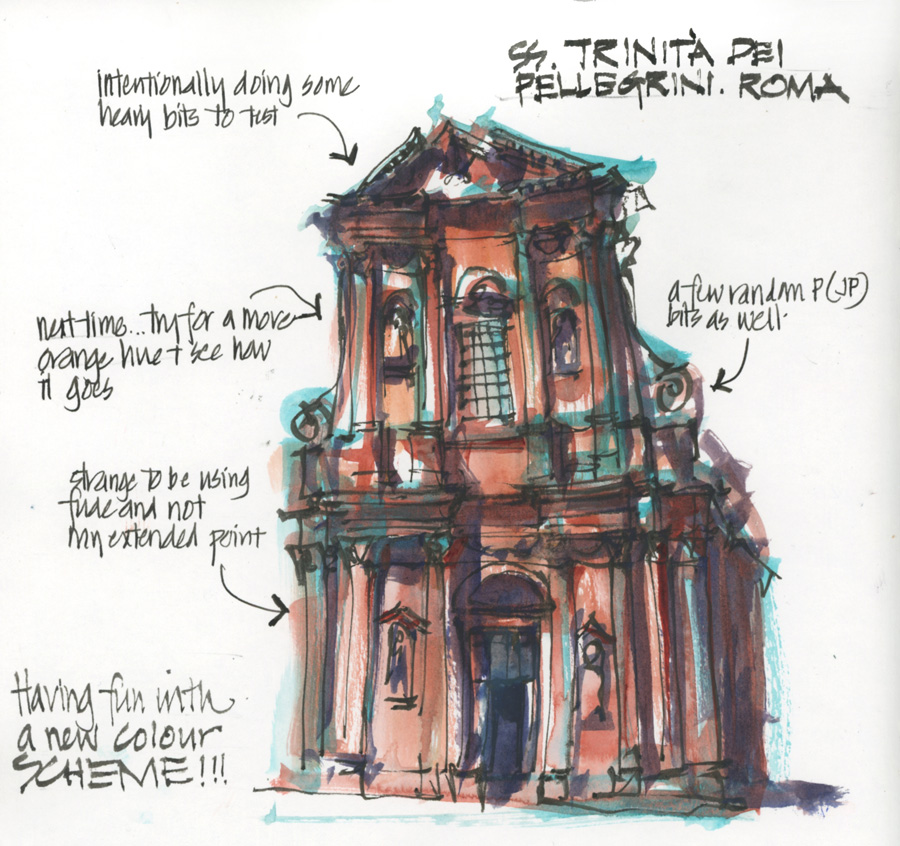 SS. TRINITÀ DEI
PELLEGRINI. ROMA
intentionally doing some
heavy bits to test
next time... try for a more
orange hue + see how
it goes
a few random P(JP)
bits as well.
strange to be using
fude and not
my extended point
Having fun with
a new colour
SCHEME!!!